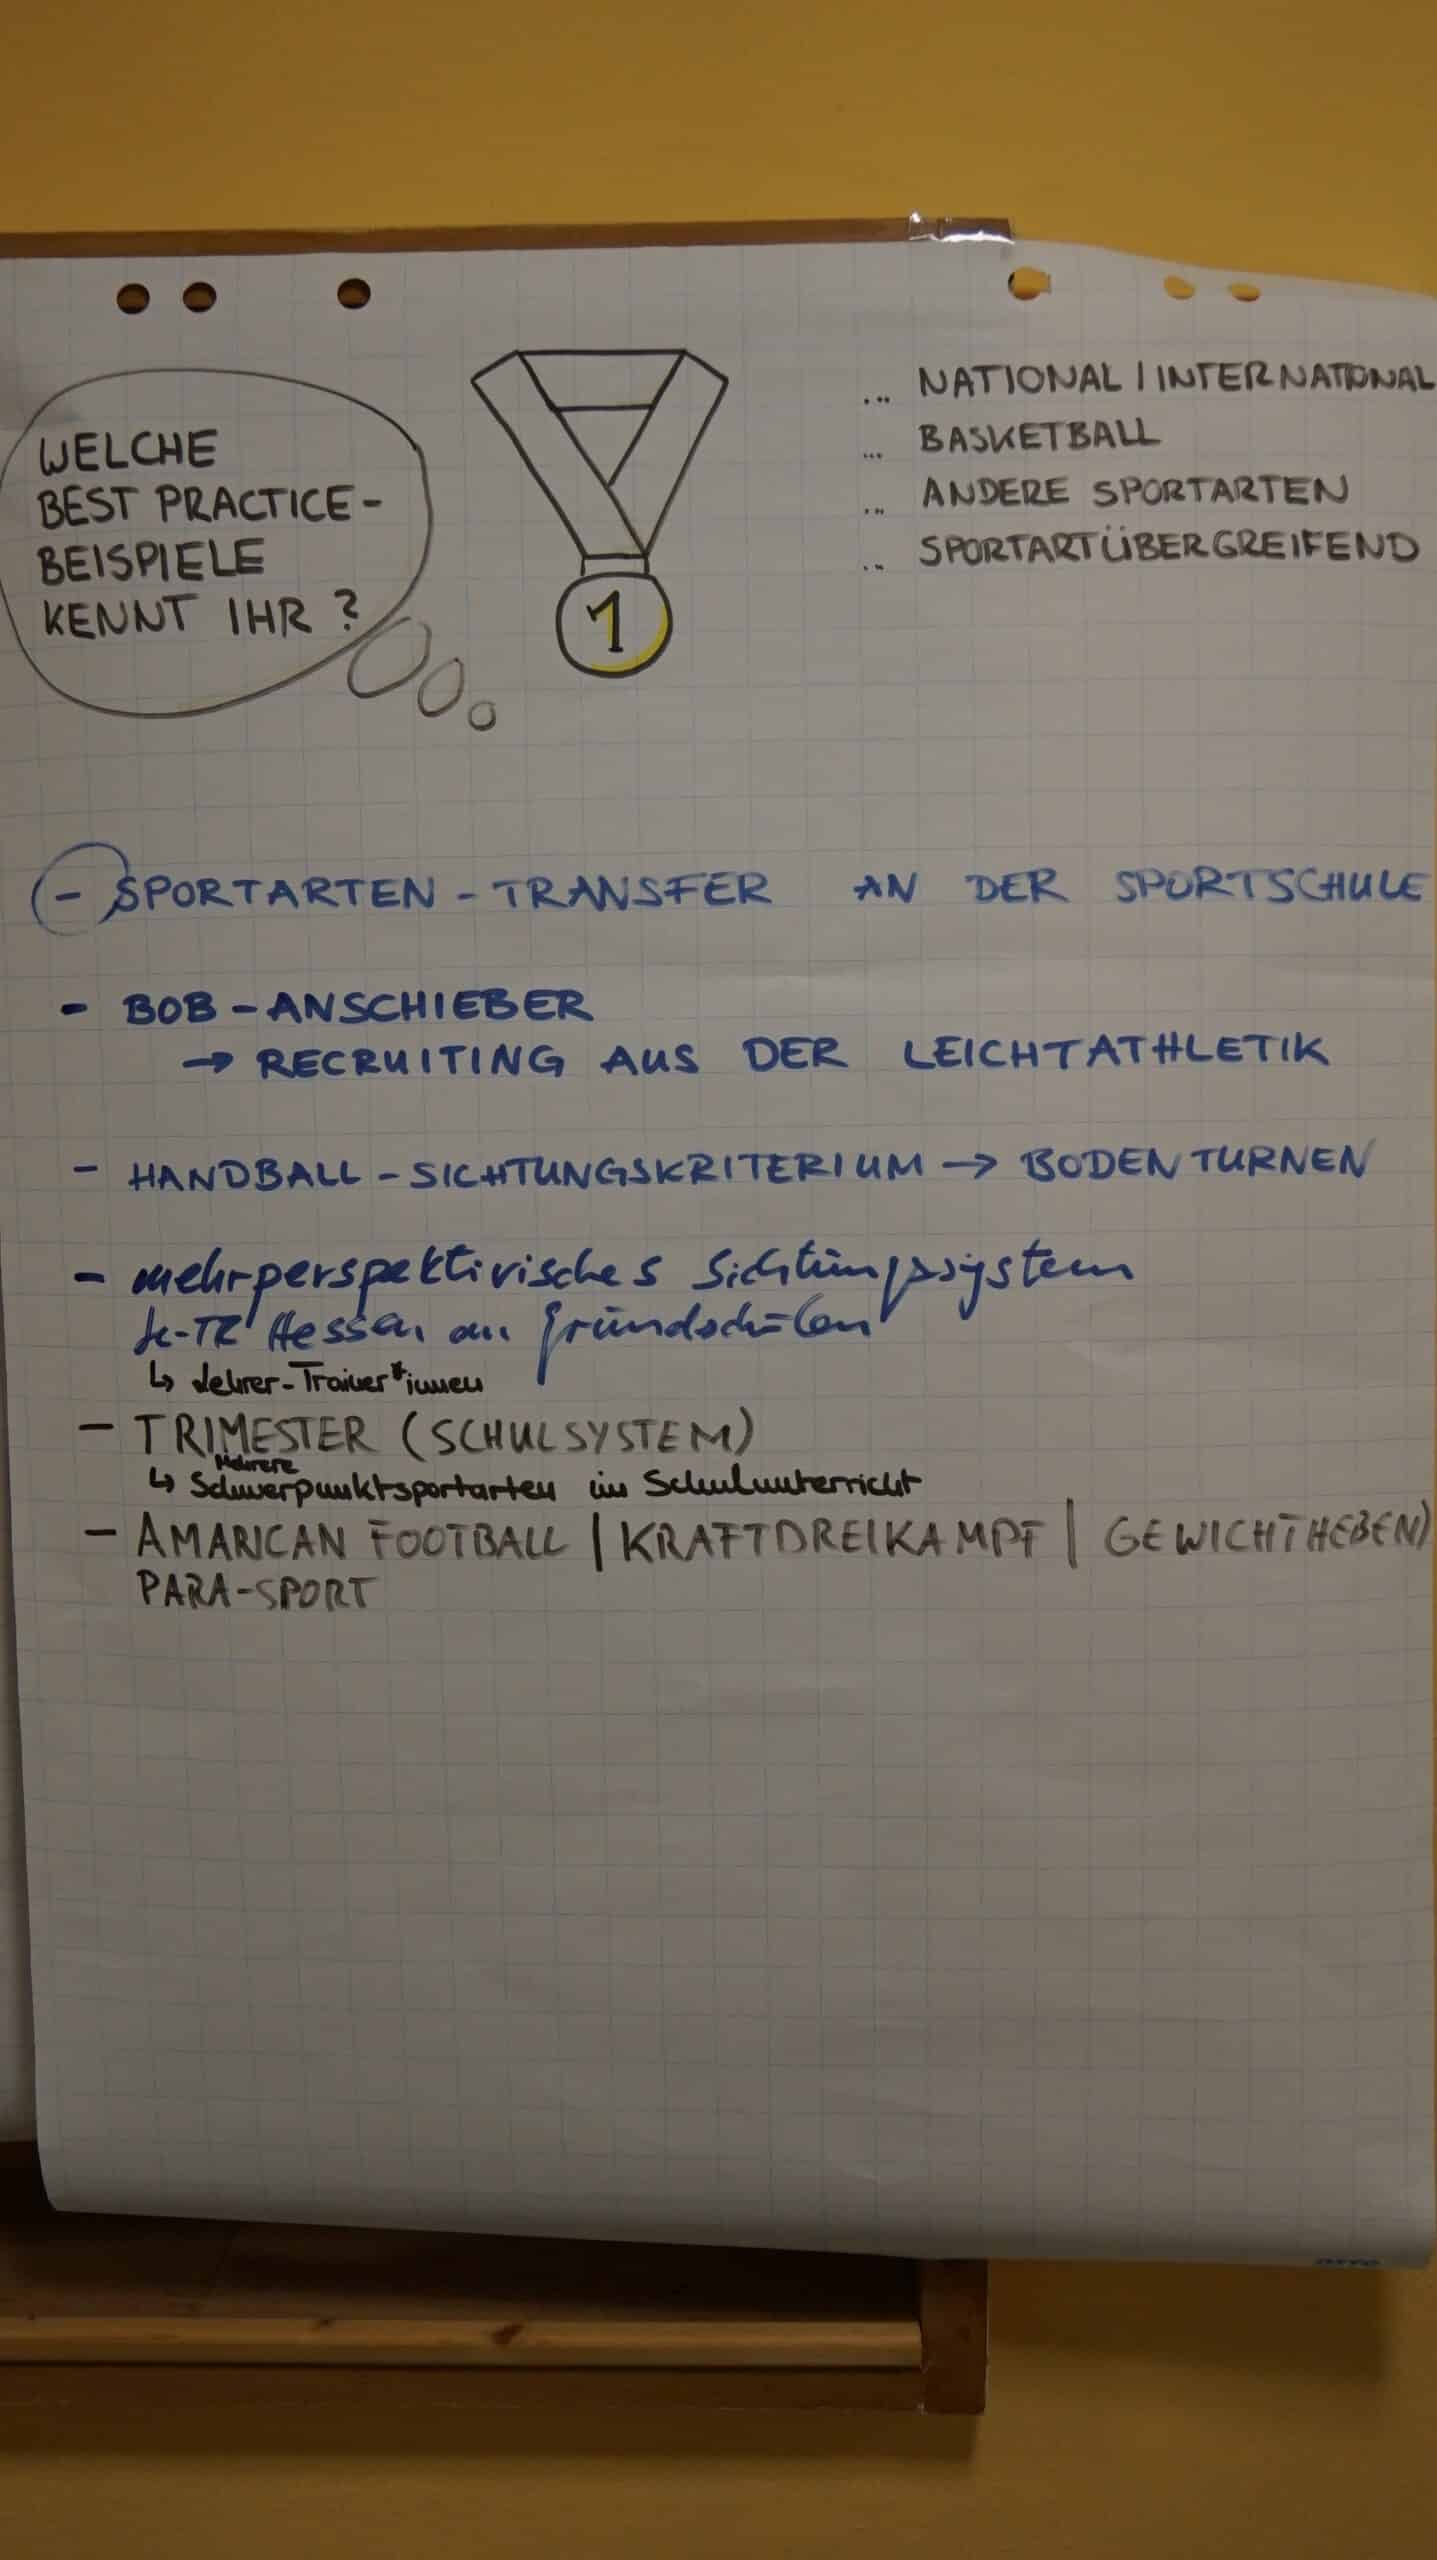 WELCHE
BEST PRACTICE-
BEISPIELE
KENNT IHR?
1
... NATIONAL / INTERNATIONAL
... BASKETBALL
... ANDERE SPORTARTEN
... SPORTARTÜBERGREIFEND
- SPORTARTEN - TRANSFER AN DER SPORTSCHULE
- BOB - ANSCHIEBER
→ RECRUITING AUS DER LEICHTATHLETIK
- HANDBALL - SICHTUNGSKRITERIUM → BODENTURNEN
- mehrperspektivisches Sichtungssystem
Hessen an Grundschulen
↳ Lehrer-Trainer*innen
- TRIMESTER (SCHULSYSTEM)
↳ Mehrere Schwerpunktsportarten im Schulunterricht
- AMARICAN FOOTBALL | KRAFTDREIKAMPF | GEWICHTHEBEN)
PARA-SPORT